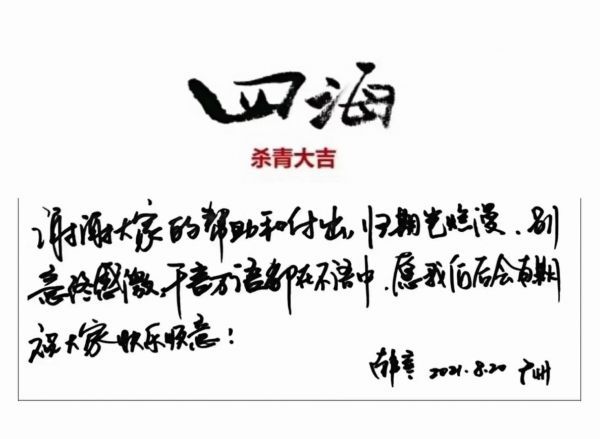 四海
杀青大吉
谢谢大家的帮助和付出,归期岂烂漫、别
意终感激,千言万语都在不语中,愿我们后会有期
祝大家快乐顺意!
韩寒 2021.8.20 广州